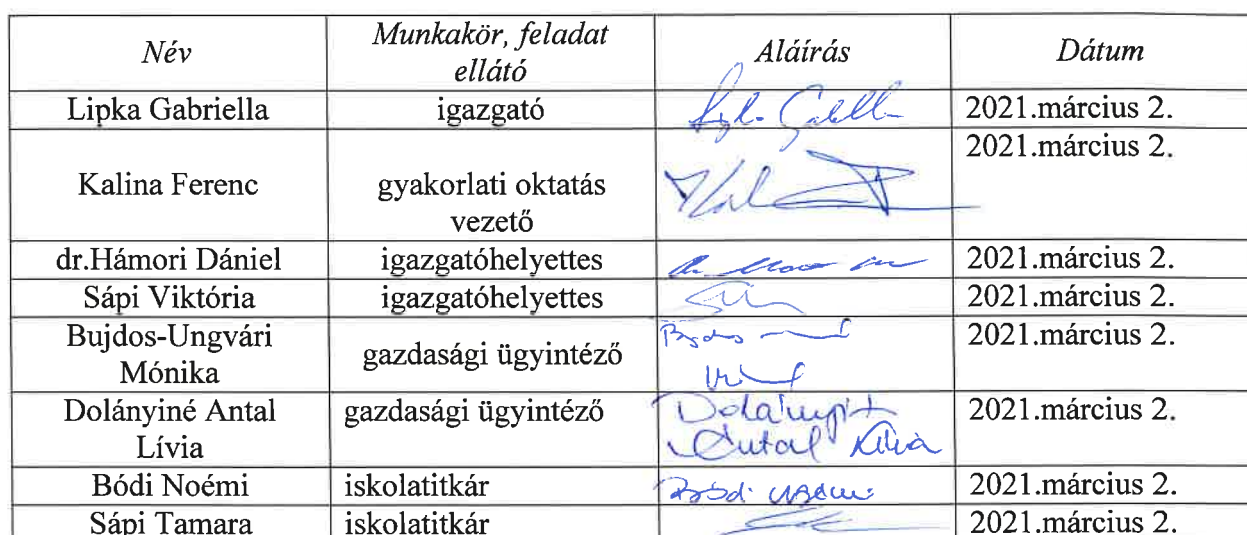 Név Munkakör, feladat ellátó Aláírás Dátum
Lipka Gabriella igazgató 2021.március 2.
Kalina Ferenc gyakorlati oktatás vezető 2021.március 2.
dr.Hámori Dániel igazgatóhelyettes 2021.március 2.
Sápi Viktória igazgatóhelyettes 2021.március 2.
Bujdos-Ungvári Mónika gazdasági ügyintéző 2021.március 2.
Dolányiné Antal Lívia gazdasági ügyintéző Antal Lívia 2021.március 2.
Bódi Noémi iskolatitkár Bódi Noémi 2021.március 2.
Sápi Tamara iskolatitkár 2021.március 2.